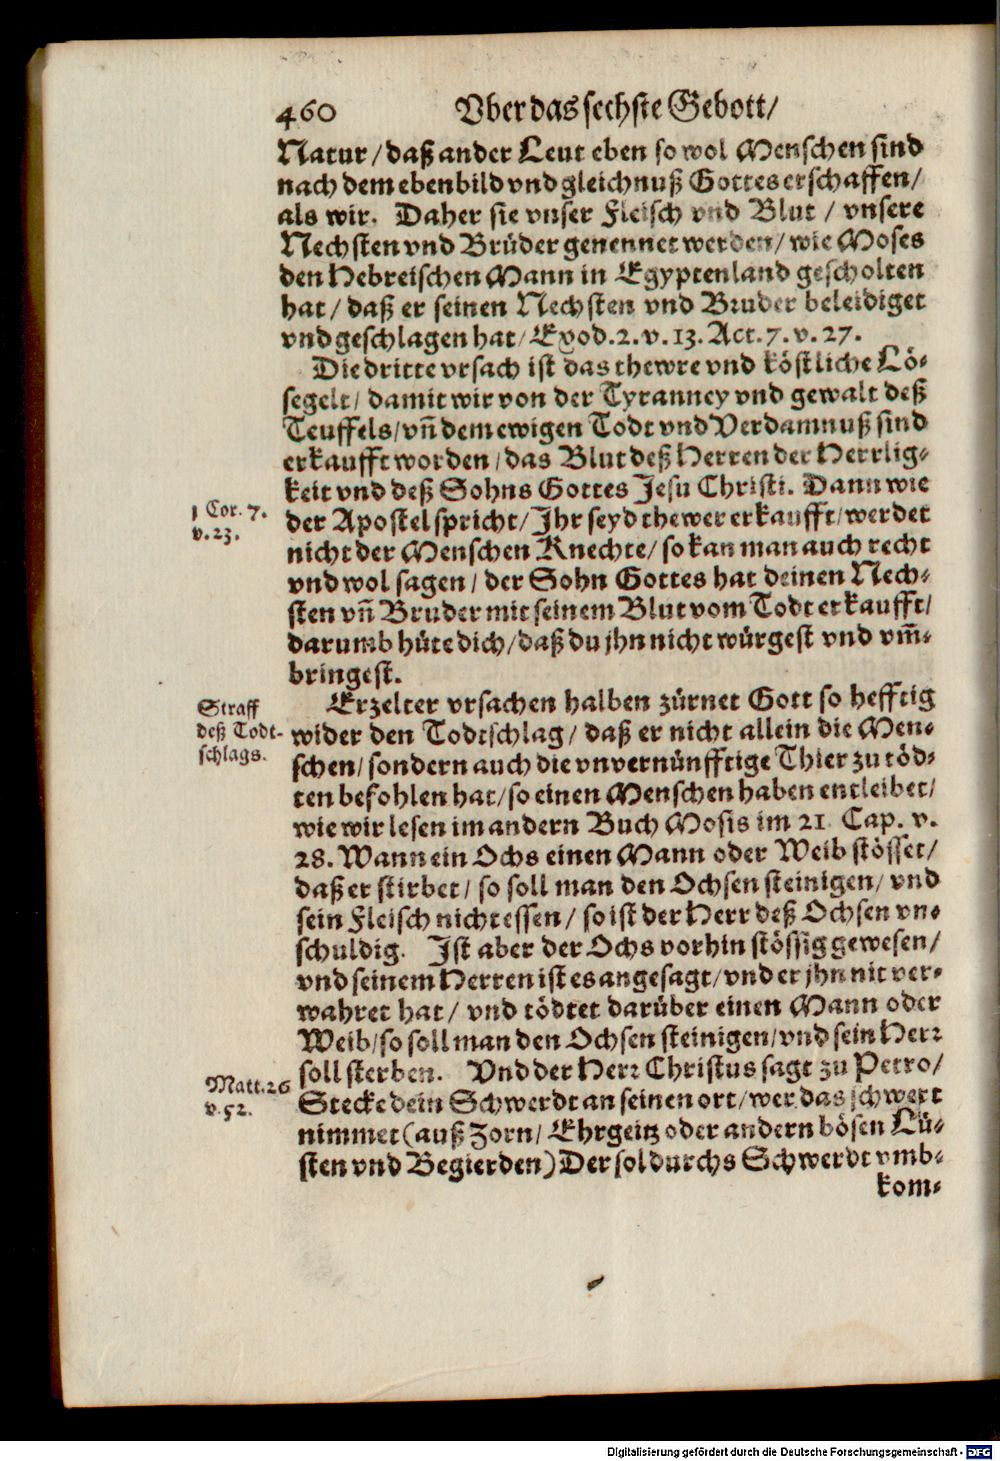 460 Vber das sechste Gebott/
Natur / daß ander Leut eben so wol Menschen sind
nach dem ebenbild vnd gleichnuß Gottes erschaffen/
als wir. Daher sie vnser Fleisch vnd Blut / vnsere
Nechsten vnd Brüder genennet werden / wie Moses
den Hebreischen Mann in Egyptenland gescholten
hat / daß er seinen Nechsten vnd Bruder beleidiget
vnd geschlagen hat / Exod. 2. v. 13. Act. 7. v. 27.
Die dritte vrsach ist das thewre vnd köstliche Lö-
segelt / damit wir von der Tyranney vnd gewalt deß
Teuffels / vn̄ dem ewigen Todt vnd Verdamnuß sind
erkaufft worden / das Blut deß Herren der Herrlig-
keit vnd deß Sohns Gottes Jesu Christi. Dann wie
1 Cor. 7.
v. 23.
der Apostel spricht / Jhr seyd thewer erkaufft / werdet
nicht der Menschen Knechte / so kan man auch recht
vnd wol sagen / der Sohn Gottes hat deinen Nech-
sten vn̄ Bruder mit seinem Blut vom Todt erkaufft /
darumb hüte dich / daß du jhn nicht würgest vnd vm̄-
bringest.
Straff
deß Todt-
schlags.
Erzelter vrsachen halben zürnet Gott so hefftig
wider den Todtschlag / daß er nicht allein die Men-
schen / sondern auch die vnvernünfftige Thier zu töd-
ten befohlen hat / so einen Menschen haben entleibet /
wie wir lesen im andern Buch Mosis im 21 Cap. v.
28. Wann ein Ochs einen Mann oder Weib stösset /
daß er stirbet / so soll man den Ochsen steinigen / vnd
sein Fleisch nicht essen / so ist der Herr deß Ochsen vn-
schuldig. Ist aber der Ochs vorhin stössig gewesen /
vnd seinem Herren ist es angesagt / vnd er jhn nit ver-
wahret hat / vnd tödtet darüber einen Mann oder
Weib / so soll man den Ochsen steinigen / vnd sein Herr
soll sterben. Vnd der Herr Christus sagt zu Petro /
Matt. 26
v. 52.
Stecke dein Schwerdt an seinen ort / wer das schwert
nimmet (auß Zorn / Ehrgeitz oder andern bösen Lü-
sten vnd Begierden) Der sol durchs Schwerdt vmb-
kom-
Digitalisierung gefördert durch die Deutsche Forschungsgemeinschaft - DFG